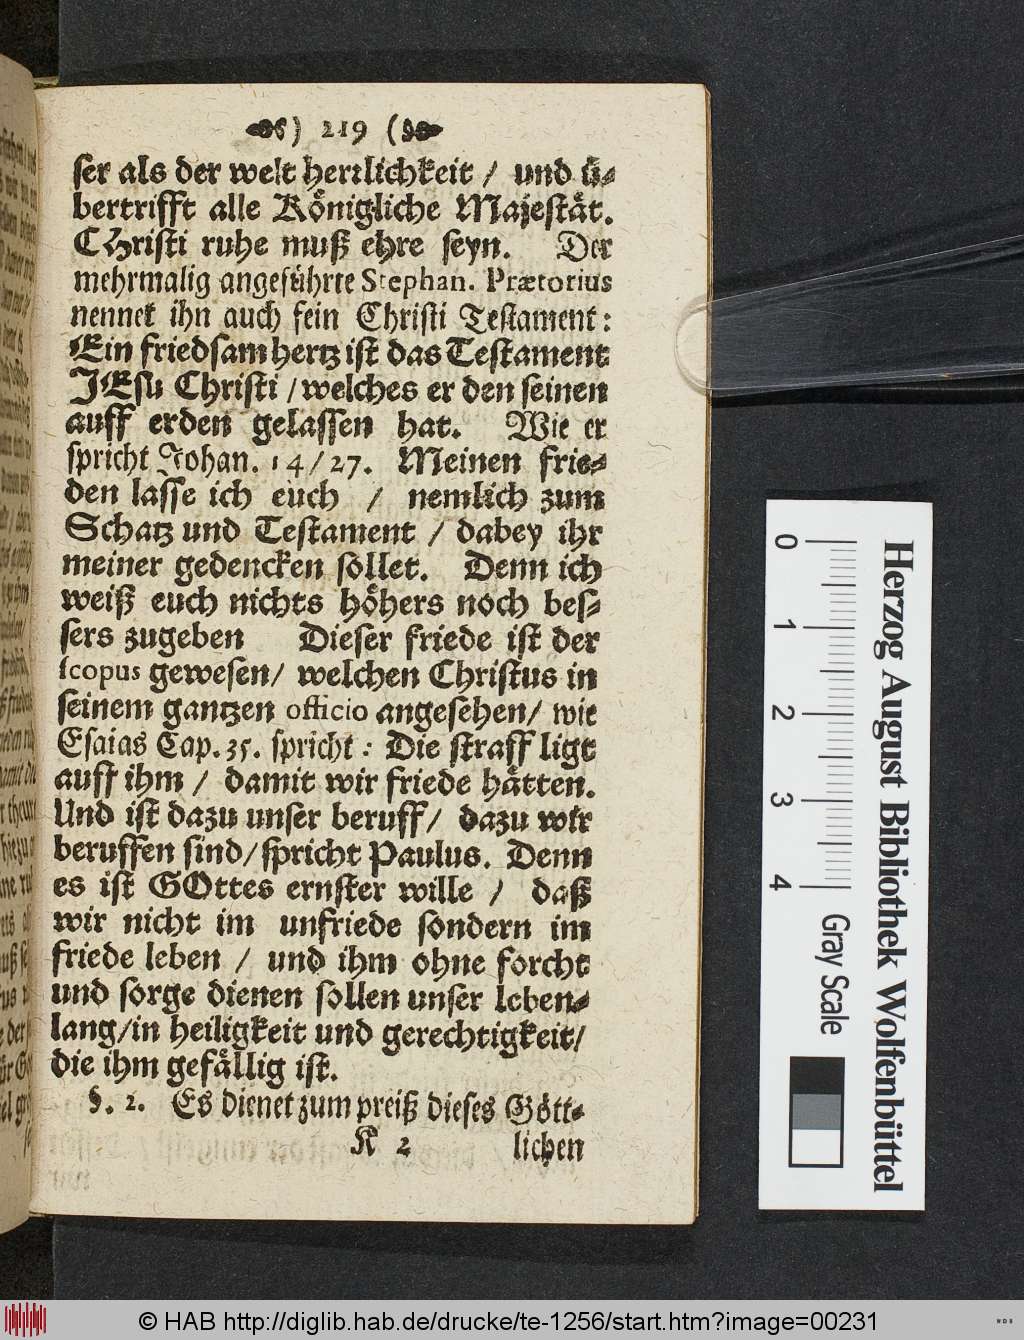 ) 219 (
ser als der welt herrlichkeit / und ü-
bertrifft alle Königliche Majestät.
CHristi ruhe muß ehre seyn. Der
mehrmalig angeführte Stephan. Prætorius
nennet ihn auch fein Christi Testament:
Ein friedsam hertz ist das Testament
JEsu Christi / welches er den seinen
auff erden gelassen hat. Wie er
spricht Johan. 14/27. Meinen frie-
den lasse ich euch / nemlich zum
Schatz und Testament / dabey ihr
meiner gedencken sollet. Denn ich
weiß euch nichts höhers noch bes-
sers zugeben Dieser friede ist der
scopus gewesen/ welchen Christus in
seinem gantzen officio angesehen/ wie
Esaias Cap. 35. spricht: Die straff ligt
auff ihm / damit wir friede hätten.
Und ist dazu unser beruff/ dazu wir
beruffen sind/ spricht Paulus. Denn
es ist GOttes ernster wille / daß
wir nicht im unfriede sondern im
friede leben / und ihm ohne forcht
und sorge dienen sollen unser leben-
lang/in heiligkeit und gerechtigkeit/
die ihm gefällig ist.
§. 2. Es dienet zum preiß dieses Gött-
K 2 lichen
Herzog August Bibliothek Wolfenbüttel
0 1 2 3 4 Gray Scale
© HAB http://diglib.hab.de/drucke/te-1256/start.htm?image=00231